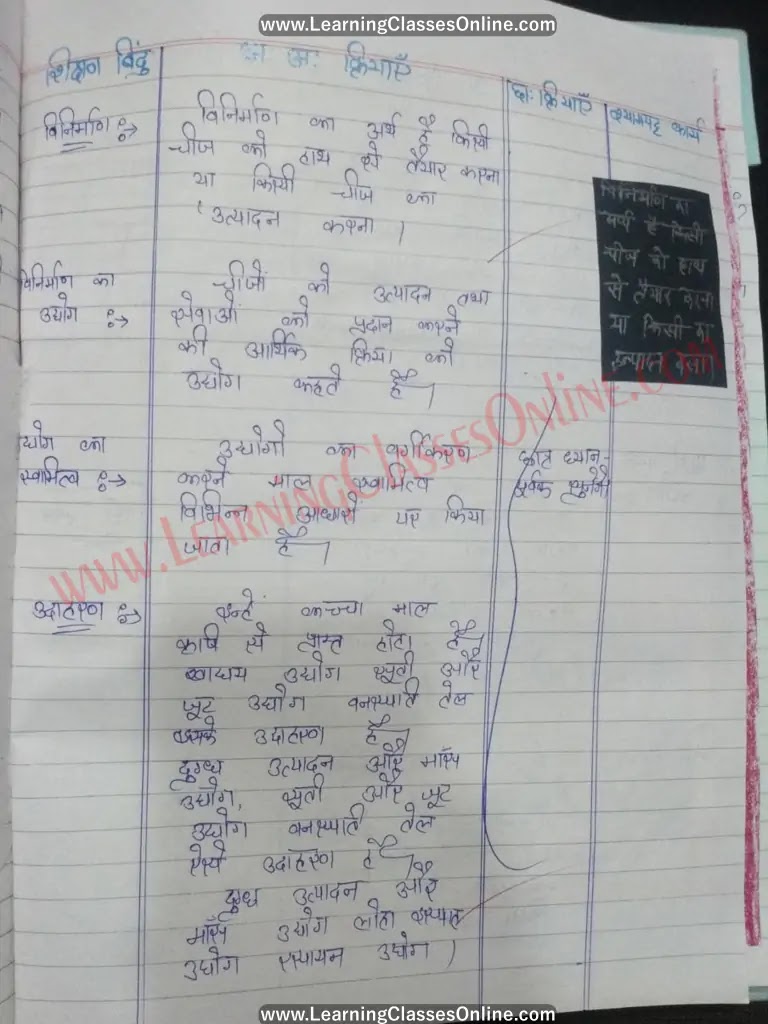 www.LearningClassesOnline.com
शिक्षण बिंदु
छा अ: क्रियाएँ
छा: क्रियाएँ
श्यामपट्ट कार्य
विनिर्माण :→
विनिर्माण का अर्थ है किसी
चीज को हाथ से तैयार करना
या किसी चीज का
उत्पादन करना ।
विनिर्माण का
अर्थ है किसी
चीज को हाथ
से तैयार करना
या किसी का
उत्पादन करना
विनिर्माण का
उद्योग :→
चीजों को उत्पादन तथा
सेवाओं को प्रदान करने
की आर्थिक क्रिया को
उद्योग कहते हैं।
का
स्वामित्व :→
उद्योगो का वर्गीकरण
करने माल स्वामित्व
विभिन्न आधारो पर किया
जाता है।
छात्र ध्यान-
पूर्वक सुनेंगे
www.LearningClassesOnline.com
उदाहरण :→
इन्हें कच्चा माल
कृषि से प्राप्त होता है।
उद्योग सूती और
जूट उद्योग वनस्पाती तेल
इसके उदाहरण हैं।
दुग्ध उत्पादन और माँस
उद्योग, सूती और जूट
उद्योग वनस्पाती तेल
ऐसे उदाहरण है।
दुग्ध उत्पादन और
माँस उद्योग लोहा इस्पात
उद्योग रसायन उद्योग ।
www.LearningClassesOnline.com